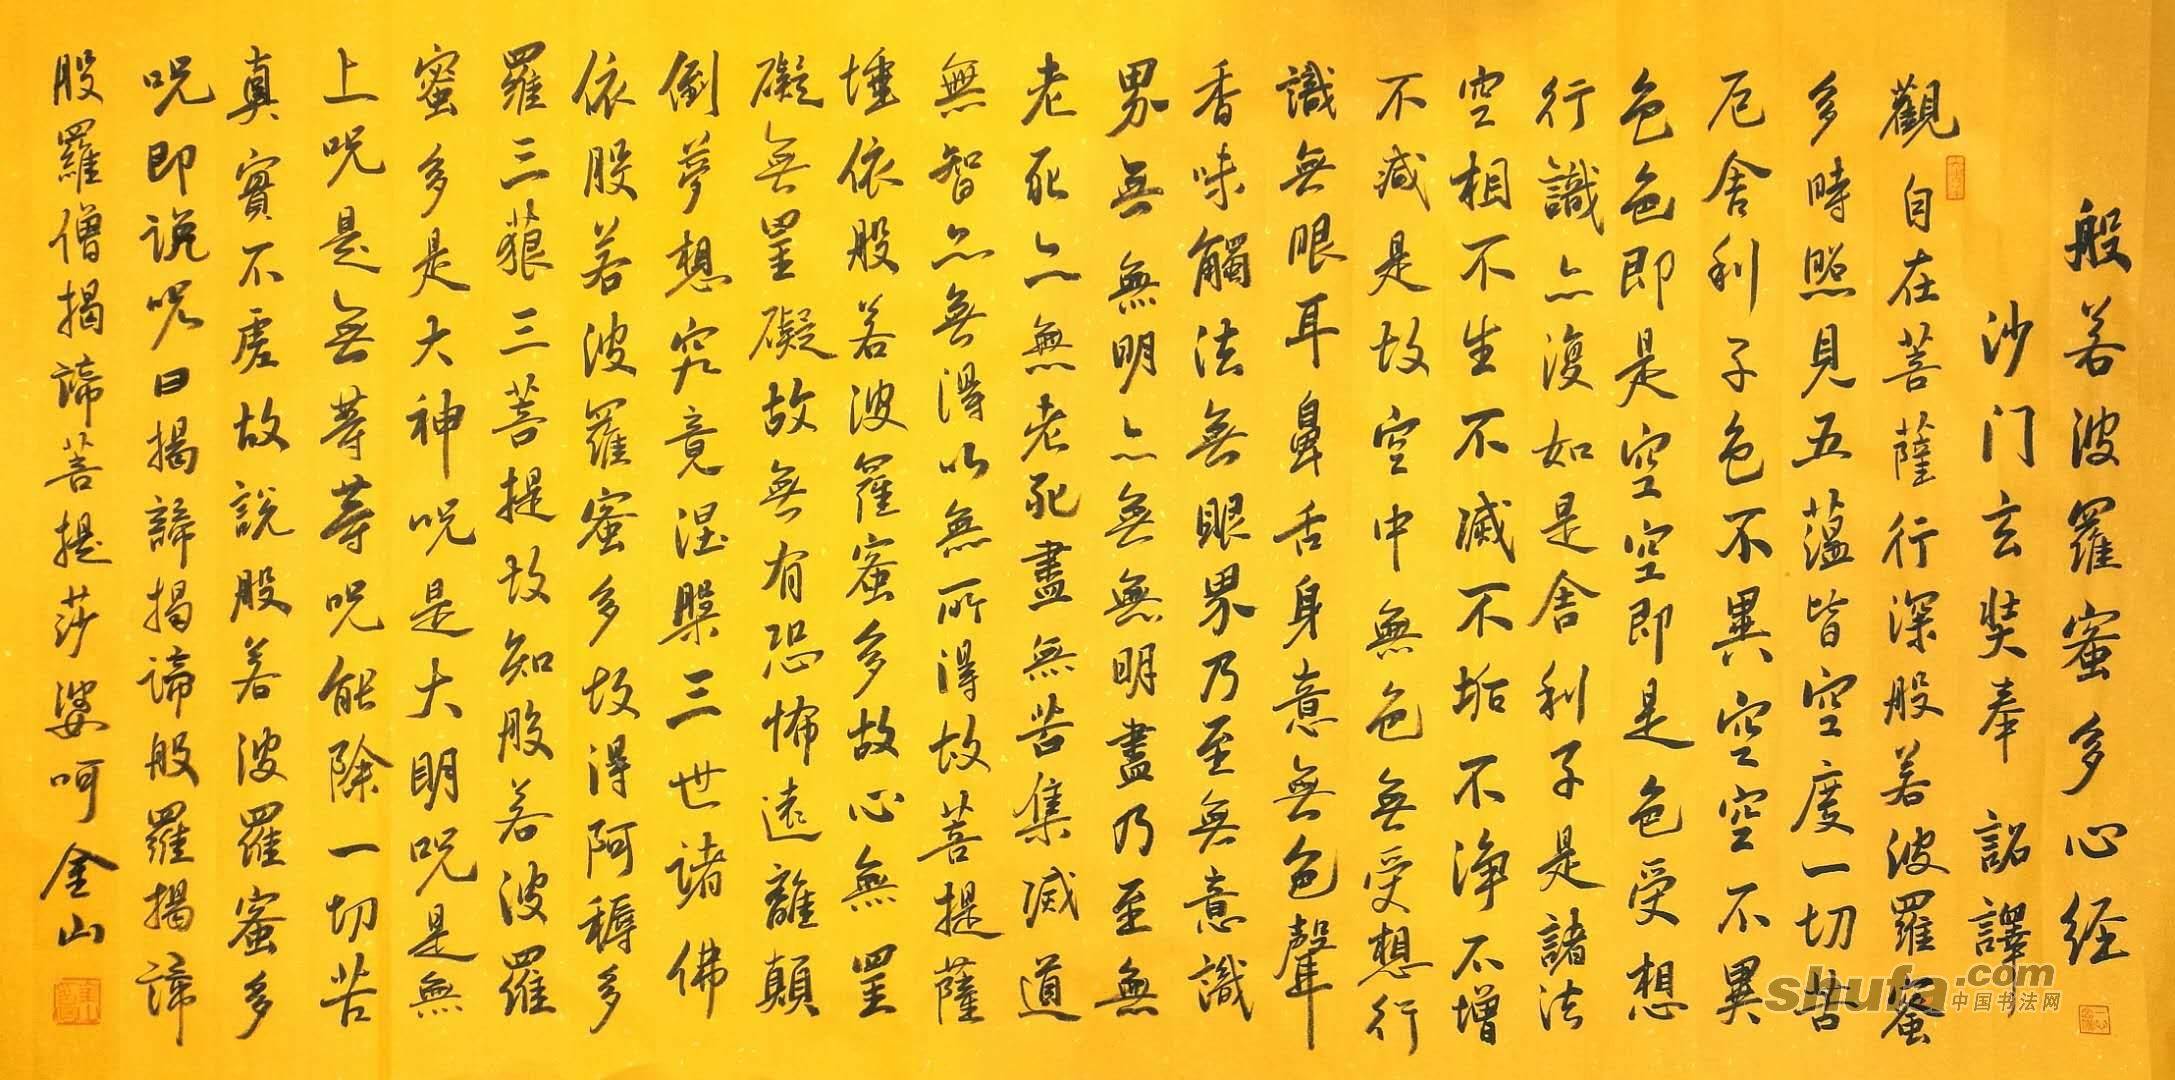 般若波羅蜜多心经
沙门玄奘奉 詔譯
觀自在菩薩行深般若波羅蜜
多時照見五蕴皆空度一切苦
厄舍利子色不異空空不異
色色即是空空即是色受想
行識亦復如是舍利子是諸法
空相不生不滅不垢不淨不增
不减是故空中無色無受想行
識無眼耳鼻舌身意無色聲
香味觸法無眼界乃至無意識
界無無明亦無無明盡乃至無
老死亦無老死盡無苦集滅道
無智亦無得以無所得故菩提薩
埵依般若波羅蜜多故心無罣
礙無罣礙故無有恐怖遠離顛
倒夢想究竟涅槃三世諸佛
依般若波羅蜜多故得阿耨多
羅三藐三菩提故知般若波羅
蜜多是大神呪是大明呪是無
上呪是無等等呪能除一切苦
真實不虛故說般若波羅蜜多
呪即说呪曰揭諦揭諦般羅揭諦
般羅僧揭諦菩提莎婆呵 金山
shufa.com
中国书法网